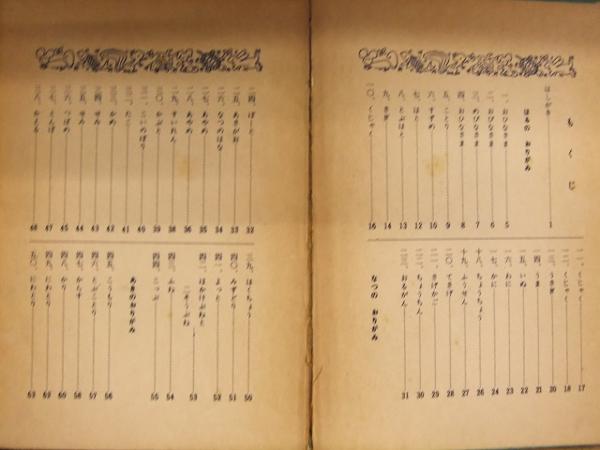 もくじ
はしがき 1
はるの おりがみ
一、おひなさま 5
二、おひなさま 6
三、めびなさま 7
四、おひなさま 8
五、ことり 9
六、すずめ 10
七、はと 12
八、とぶはと 13
九、さぎ 14
一〇、くじゃく 16
一一、くじゃく 17
一二、くじゃく 18
一三、うさぎ 20
一四、うま 21
一五、いぬ 22
一六、わに 23
一七、かに 24
一八、ちょうちょう 26
一九、ふうせん 27
二〇、てさげ 28
二一、さげかご 29
二二、ちょうちん 30
二三、おるがん 31
なつの おりがみ
二四、ぼーと 32
二五、あさがお 33
二六、なつのはな 34
二七、あやめ 35
二八、あやめ 36
二九、すいれん 38
三〇、かぶと 39
三一、こいのぼり 40
三二、たこ 41
三三、かめ 42
三四、せみ 43
三五、せみ 44
三六、つばめ 45
三七、とんぼ 47
三八、かえる 48
三九、はくちょう 50
四〇、みずどり 51
四一、よっと 52
四二、ほかけぶねと
二そうぶね 53
四三、ふね 54
四四、こっぷ 55
あきのおりがみ
四五、こうもり 56
四六、とぶことり 57
四七、からす 58
四八、かり
四九、にわとり
五〇、にわとり